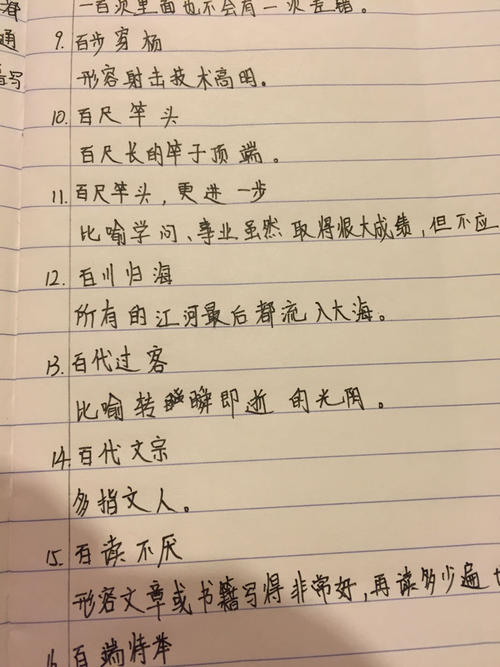 一百次里面也不会有一次差错。
9. 百步穿杨
形容射击技术高明。
10. 百尺竿头
百尺长的竿子顶端。
11. 百尺竿头，更进一步
比喻学问、事业虽然取得很大成绩，但不应
12. 百川归海
所有的江河最后都流入大海。
13. 百代过客
比喻转瞬即逝的光阴。
14. 百代文宗
多指文人。
15. 百读不厌
形容文章或书籍写得非常好，再读多少遍也
16 百端待举